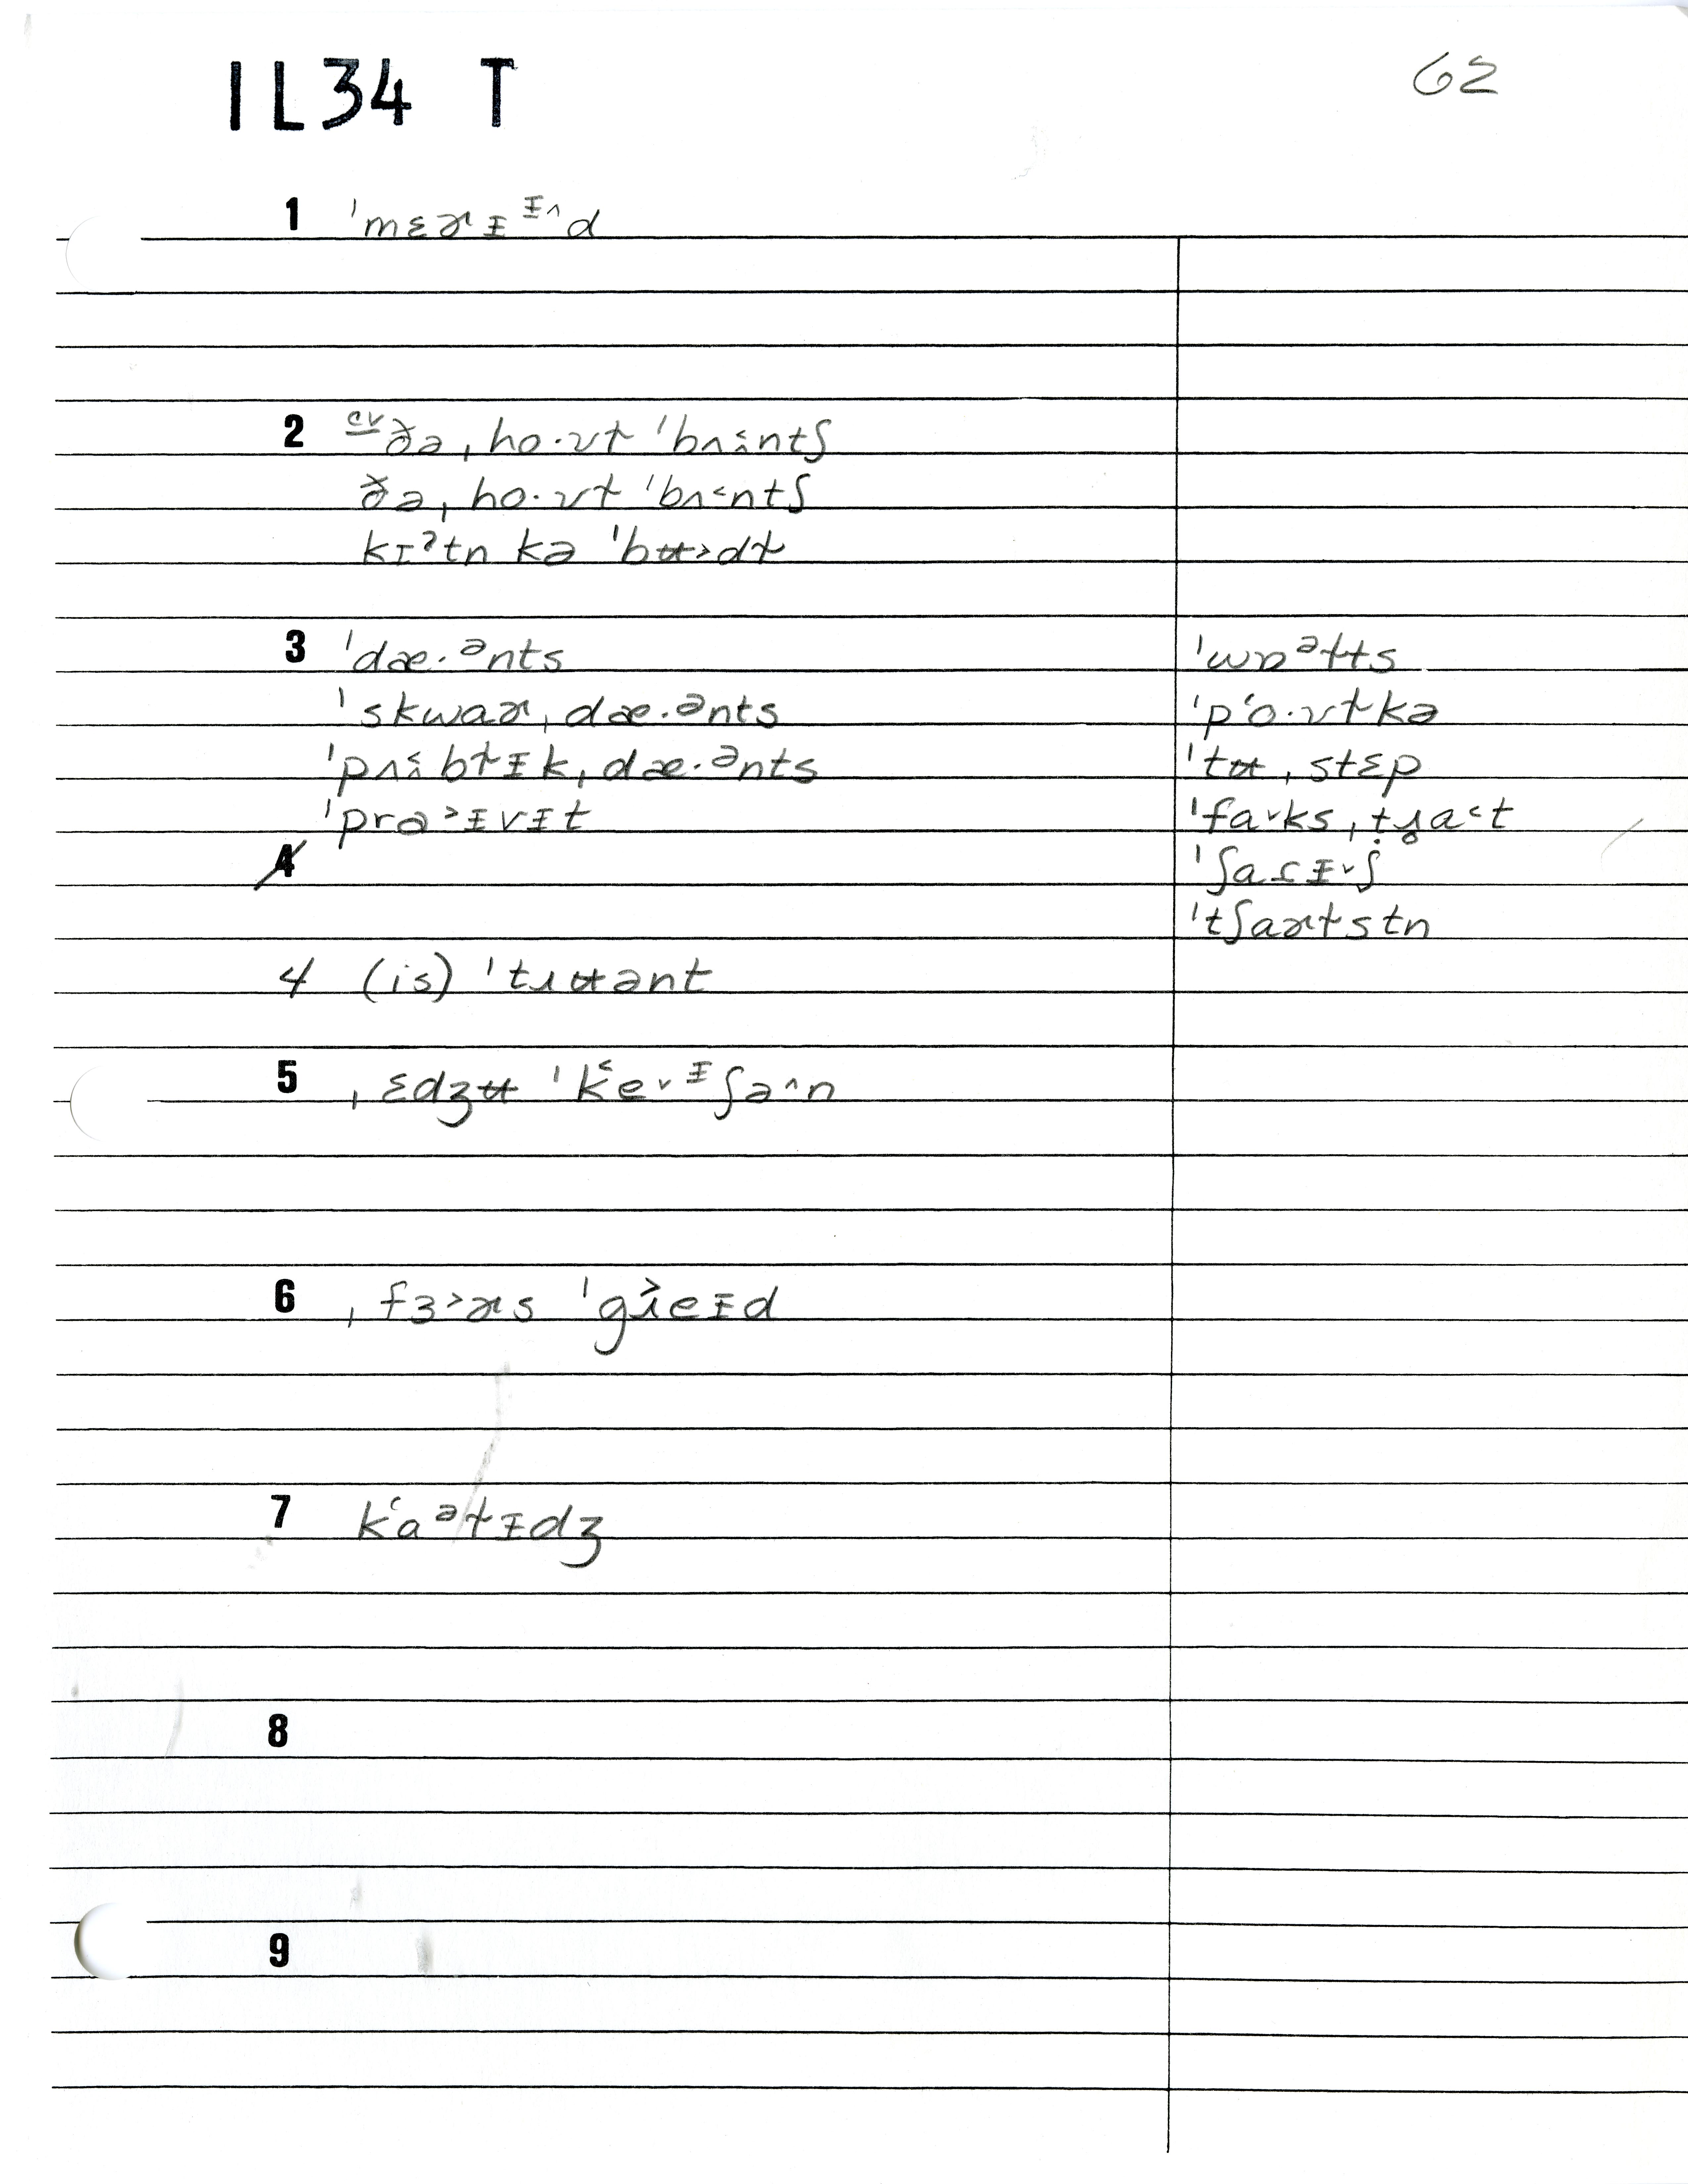 IL34 T
62
1 ˈmɛɚᵻ ᵻ˄d
2 c͟v͟ ðə ˌho·ʊɫ ˈbʌ˂ntʃ
ðə ˌho·ʊɫ ˈbʌ˂ntʃ
kɪˀtn̩ kə ˈbʉ˃dɫ
3 ˈdæ·ᵊnts
ˈskwaɚˌdæ·ᵊnts
ˈpʌ˂bɫᵻkˌdæ·ᵊnts
ˈpra˃ᵻvᵻt
ˈwɒᵊɫts
ˈpʻo·ʊɫkə
ˈtʉˌstɛp
ˈfa˅ksˌtɹ̥a˂t
ˈʃaɾᵻ˅ʃ
ˈtʃaɚɫstn
4
4 (is) ˈtɹʉənt
5 ˌɛdʒʉ ˈkʻe˅ᵻʃə˄n
6 ˌfɜ˃ɚs ˈgɹ˃eᵻd
7 kʻaᵊɫᵻdʒ
8
9